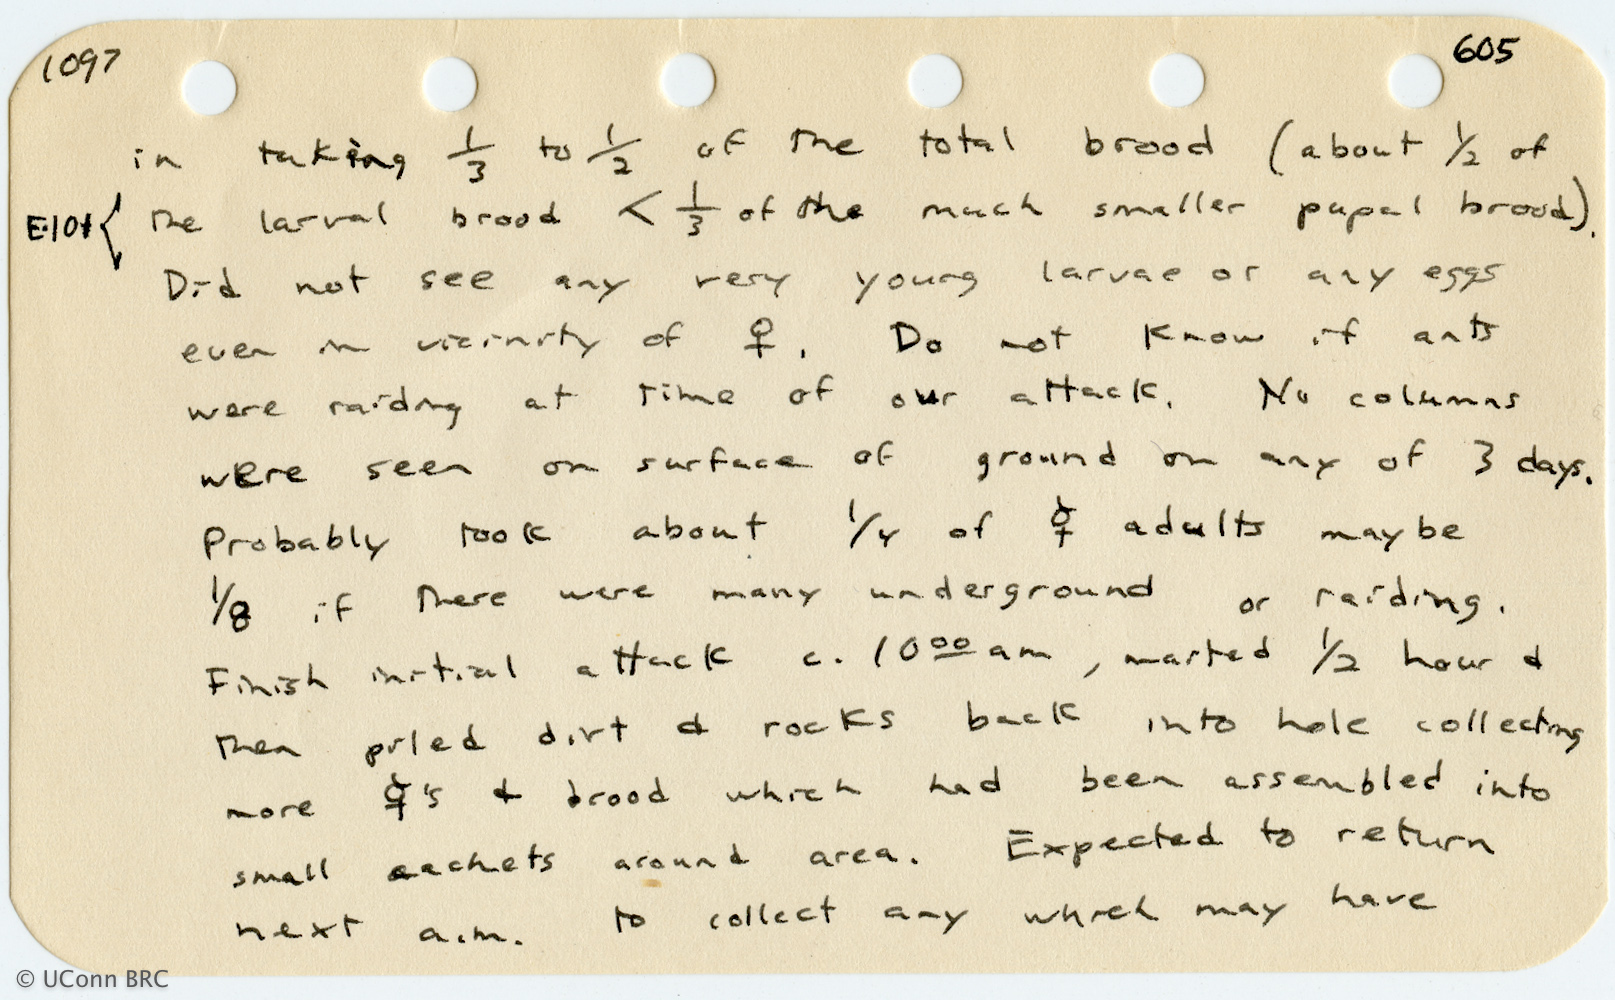 1097
605
in taking 1/3 to 1/2 of the total brood (about 1/2 of
E-101 { the larval brood < 1/3 of the much smaller pupal brood).
Did not see any very young larvae or any eggs
even in vicinity of ♀. Do not know if ants
were raiding at time of our attack. No columns
were seen on surface of ground on any of 3 days.
Probably took about 1/4 of ☿ adults maybe
1/8 if there were many underground or raiding.
Finish initial attack c. 10:00 am, waited 1/2 hour &
then piled dirt & rocks back into hole collecting
more ☿'s & brood which had been assembled into
small cachets around area. Expected to return
next a.m. to collect any which may have
© UConn BRC